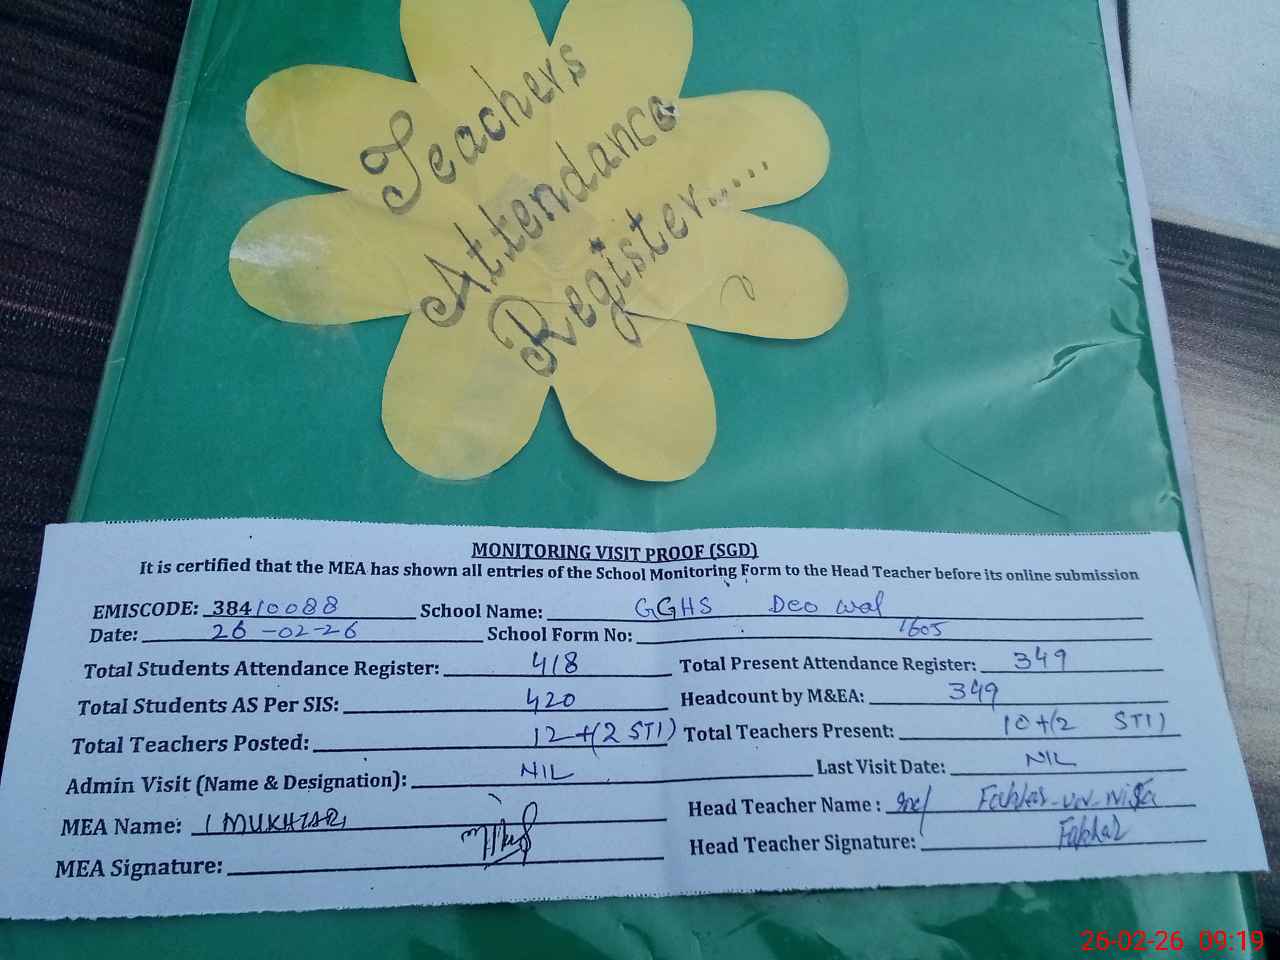 Teachers
Attendance
Register.....
MONITORING VISIT PROOF (SGD)
It is certified that the MEA has shown all entries of the School Monitoring Form to the Head Teacher before its online submission
EMISCODE: 38410088 School Name: GGHS Deowal
Date: 26-02-26 School Form No: 1605
Total Students Attendance Register: 418 Total Present Attendance Register: 349
Total Students AS Per SIS: 420 Headcount by M&EA: 349
Total Teachers Posted: 12+(2 STI) Total Teachers Present: 10+(2 STI)
Admin Visit (Name & Designation): NIL Last Visit Date: NIL
MEA Name: MUKHTAR Head Teacher Name:
MEA Signature: Head Teacher Signature: Fakhar
26-02-26 09:19